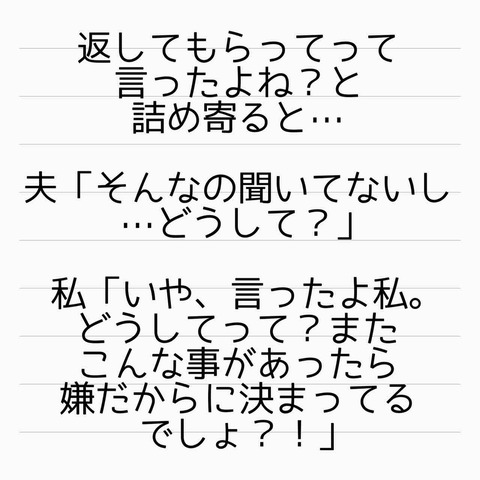 返してもらってって
言ったよね？と
詰め寄ると…
夫「そんなの聞いてないし
…どうして？」
私「いや、言ったよ私。
どうしてって？また
こんな事があったら
嫌だからに決まってる
でしょ？！」